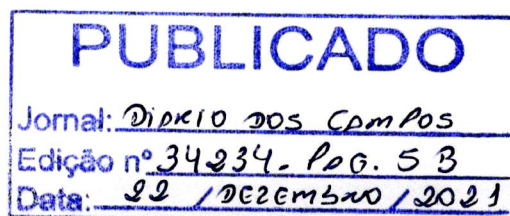 PUBLICADO
Jornal: DIÁRIO DOS CAMPOS
Edição nº 34234- PAG. 5 B
Data: 22 / DEZEMBRO / 2021